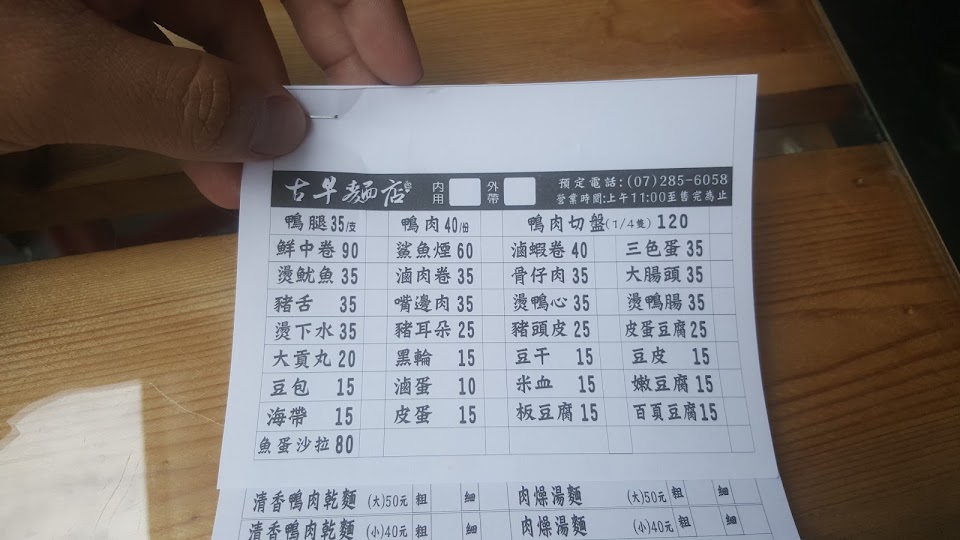 古早麵店 內用 外帶 預定電話:(07)285-6058
營業時間:上午11:00至售完為止
鴨腿35/支 鴨肉40/份 鴨肉切盤(1/4隻) 120
鮮中卷 90 鯊魚煙 60 滷蝦卷 40 三色蛋 35
燙魷魚 35 滷肉卷 35 骨仔肉 35 大腸頭 35
豬舌 35 嘴邊肉 35 燙鴨心 35 燙鴨腸 35
燙下水 35 豬耳朵 25 豬頭皮 25 皮蛋豆腐 25
大貢丸 20 黑輪 15 豆干 15 豆皮 15
豆包 15 滷蛋 10 米血 15 嫩豆腐 15
海帶 15 皮蛋 15 板豆腐 15 百頁豆腐 15
魚蛋沙拉 80
清香鴨肉乾麵 (大)50元 粗 細 肉燥湯麵 (大)50元 粗 細
清香鴨肉乾麵 (小)40元 粗 細 肉燥湯麵 (小)40元 粗 細